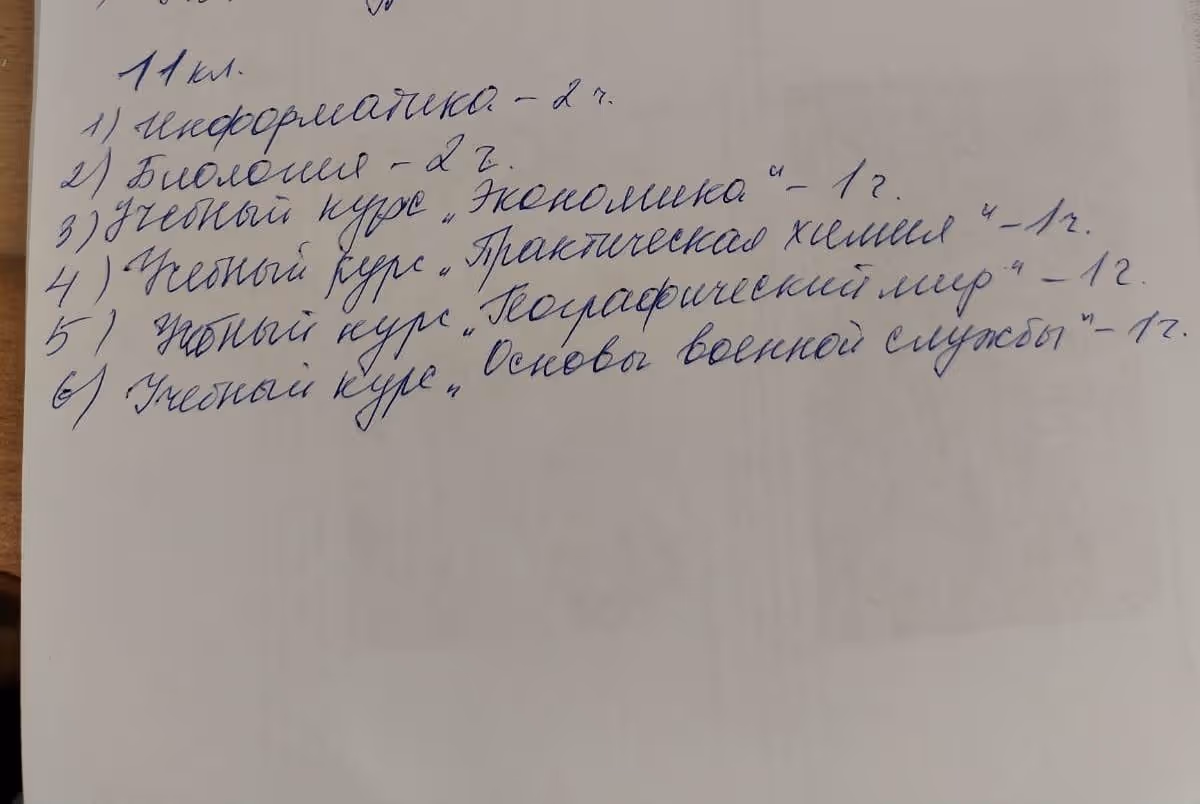 11 кл.
1) Информатика - 2 ч.
2) Биология - 2 ч.
3) Учебный курс „Экономика“ - 1 ч.
4) Учебный курс „Практическая химия“ - 1 ч.
5) Учебный курс „Географический мир“ - 1 ч.
6) Учебный курс „Основы военной службы“ - 1 ч.